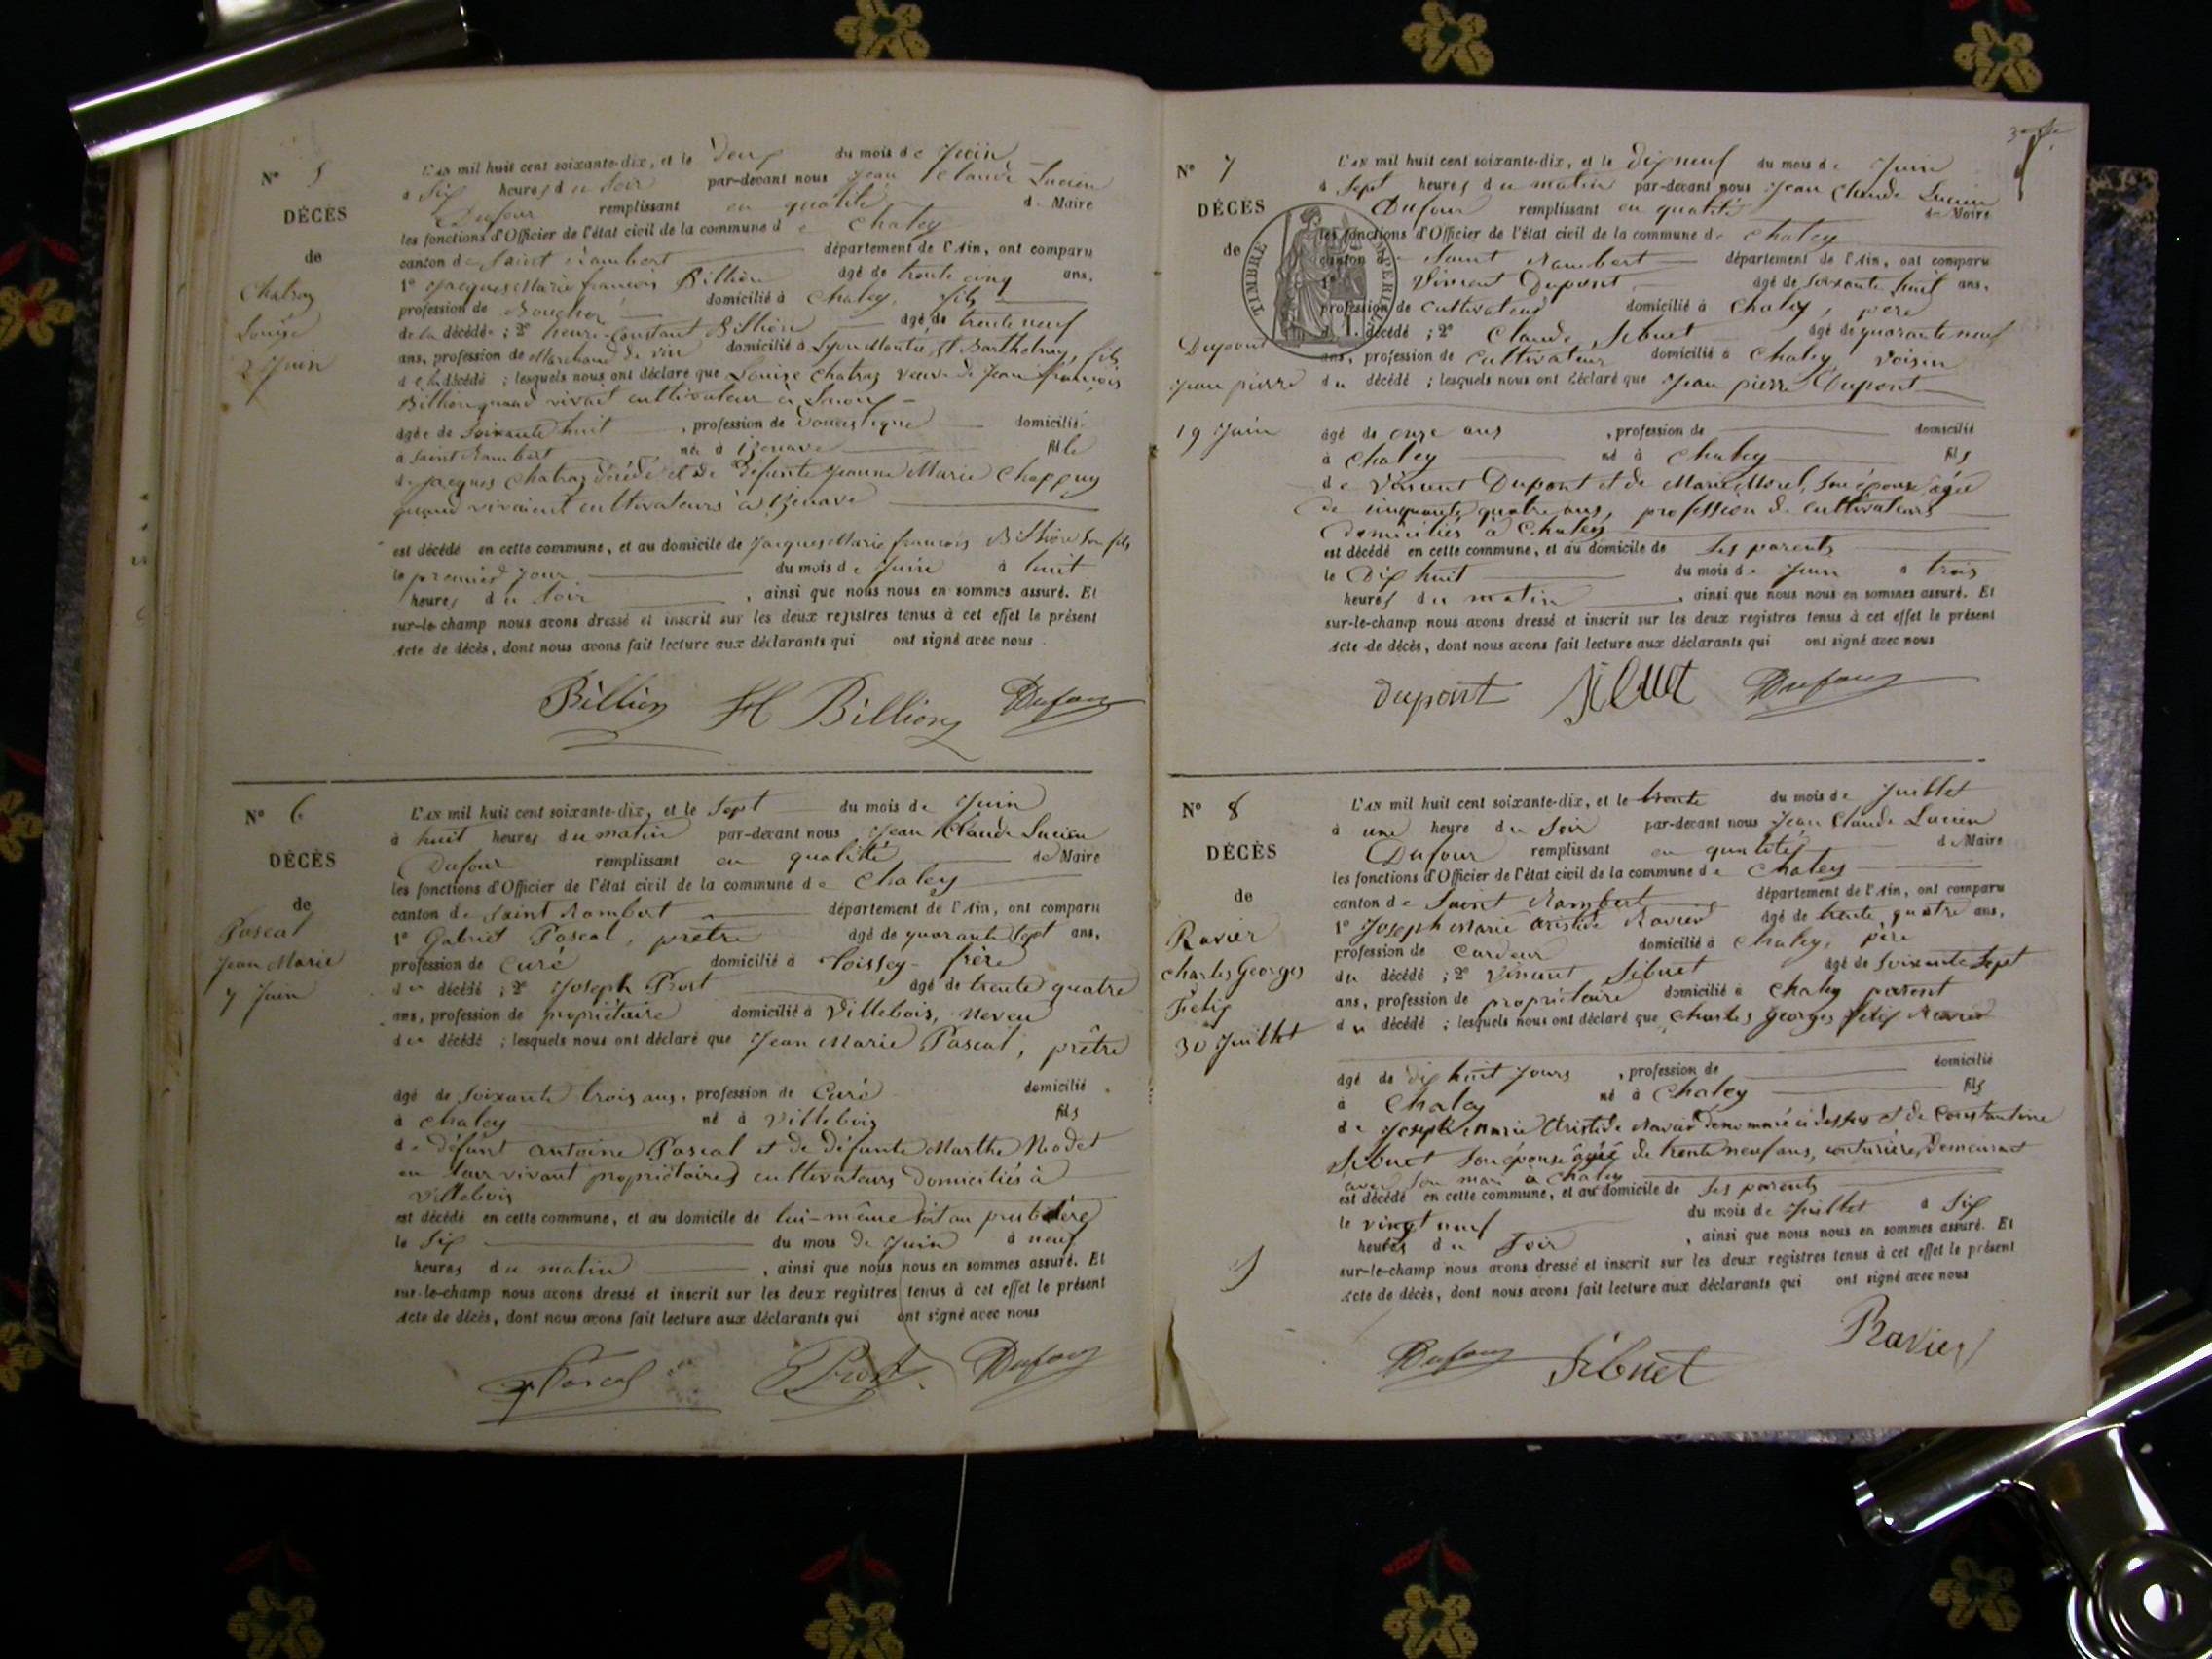 N° 5
DÉCÈS
de
Chatraz
Louise
2 Juin
L'AN mil huit cent soixante-dix, et le deux du mois de Juin
à Six heures du soir par-devant nous Jean Claude Lucien
Dufour remplissant en qualité de Maire
les fonctions d'Officier de l'état civil de la commune de Chaley
canton de Saint Rambert département de l'Ain, ont comparu
1° Jacques Marie françois Billion âgé de trente cinq ans,
profession de Boucher domicilié à Chaley, fils
de la décédée ; 2° henri Constant Billion âgé de trente neuf
ans, profession de Marchand de vin domicilié à Lyon Montée St Barthelmy, fils
de la décédé ; lesquels nous ont déclaré que Louise Chatraz veuve de Jean françois
Billion quand vivait cultivateur à
âgée de Soixante huit , profession de Domestique domicilié
à Saint Rambert née à Izenave fille
de Jacques Chatraz décédé et de défunte Jeanne Marie Chappuy
quand vivaient cultivateurs à Izenave
est décédé en cette commune, et au domicile de Jacques Marie françois Billion son fils
le premier jour du mois de Juin à huit
heures du Soir , ainsi que nous nous en sommes assuré. Et
sur-le-champ nous avons dressé et inscrit sur les deux registres tenus à cet effet le présent
Acte de décès, dont nous avons fait lecture aux déclarants qui ont signé avec nous.
Billion H Billion Dufour
N° 6
DÉCÈS
de
Pascal
Jean Marie
7 Juin
L'AN mil huit cent soixante-dix, et le Sept du mois de Juin
à huit heures du matin par-devant nous Jean Claude Lucien
Dufour remplissant en qualité de Maire
les fonctions d'Officier de l'état civil de la commune de Chaley
canton de Saint Rambert département de l'Ain, ont comparu
1° Gabriel Pascal, prêtre âgé de quarante Sept ans,
profession de Curé domicilié à Loissey frère
du décédé ; 2° Joseph Prost âgé de trente quatre
ans, profession de propriétaire domicilié à Villebois, neveu
du décédé ; lesquels nous ont déclaré que Jean Marie Pascal, prêtre
âgé de Soixante trois ans, profession de Curé domicilié
à Chaley né à Villebois fils
de défunt Antoine Pascal et de défunte Marthe Nodet
en leur vivant propriétaires cultivateurs Domiciliés à
Villebois
est décédé en cette commune, et au domicile de lui-même soit au presbitère
le Six du mois de Juin à neuf
heures du matin , ainsi que nous nous en sommes assuré. Et
sur-le-champ nous avons dressé et inscrit sur les deux registres tenus à cet effet le présent
Acte de décès, dont nous avons fait lecture aux déclarants qui ont signé avec nous
Pascal Prost Dufour
N° 7
DÉCÈS
de
TIMBRE IMPERIAL
Dupont
Jean pierre
19 Juin
L'AN mil huit cent soixante-dix, et le dix neuf du mois de Juin
à Sept heures du matin par-devant nous Jean Claude Lucien
Dufour remplissant en qualité de Maire
les fonctions d'Officier de l'état civil de la commune de Chaley
canton de Saint Rambert département de l'Ain, ont comparu
1° Vincent Dupont âgé de Soixante huit ans,
profession de cultivateur domicilié à Chaley, père
du décédé ; 2° Claude Sibuet âgé de quarante neuf
ans, profession de cultivateur domicilié à Chaley voisin
du décédé ; lesquels nous ont déclaré que Jean pierre Dupont
âgé de onze ans , profession de domicilié
à Chaley né à Chaley fils
de Vincent Dupont et de Marie Morel, Son épouse âgée
de cinquante quatre ans, profession de cultivateurs
domiciliés à Chaley
est décédé en cette commune, et au domicile de Ses parents
le Dix huit du mois de Juin à trois
heures du matin , ainsi que nous nous en sommes assuré. Et
sur-le-champ nous avons dressé et inscrit sur les deux registres tenus à cet effet le présent
Acte de décès, dont nous avons fait lecture aux déclarants qui ont signé avec nous
dupont Sibuet Dufour
N° 8
DÉCÈS
de
Ravier
Charles Georges
Félix
30 Juillet
L'AN mil huit cent soixante-dix, et le trente du mois de Juillet
à une heure du Soir par-devant nous Jean Claude Lucien
Dufour remplissant en qualité de Maire
les fonctions d'Officier de l'état civil de la commune de Chaley
canton de Saint Rambert département de l'Ain, ont comparu
1° Joseph Marie Aristide Ravier âgé de trente quatre ans,
profession de Cardeur domicilié à Chaley, père
du décédé ; 2° Vincent Sibuet âgé de Soixante Sept
ans, profession de propriétaire domicilié à Chaley parent
du décédé ; lesquels nous ont déclaré que Charles Georges félix Ravier
âgé de dix huit jours , profession de domicilié
à Chaley né à Chaley fils
de Joseph Marie Aristide Ravier dénommé ci dessus et de Constantine
Sibuet Son épouse âgée de trente neuf ans, couturière, Demeurant
avec son mari à Chaley
est décédé en cette commune, et au domicile de Ses parents
le vingt neuf du mois de Juillet à Six
heures du Soir , ainsi que nous nous en sommes assuré. Et
sur-le-champ nous avons dressé et inscrit sur les deux registres tenus à cet effet le présent
Acte de décès, dont nous avons fait lecture aux déclarants qui ont signé avec nous
Dufour Sibuet Ravier